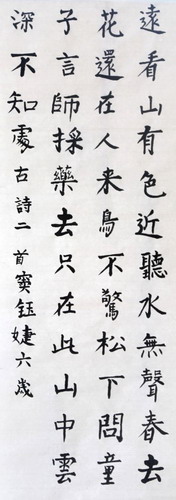 遠看山有色近聽水無聲春去
花還在人来鳥不驚松下問童
子言師採藥去只在此山中雲
深不知處古詩二首竇鈺婕六歲